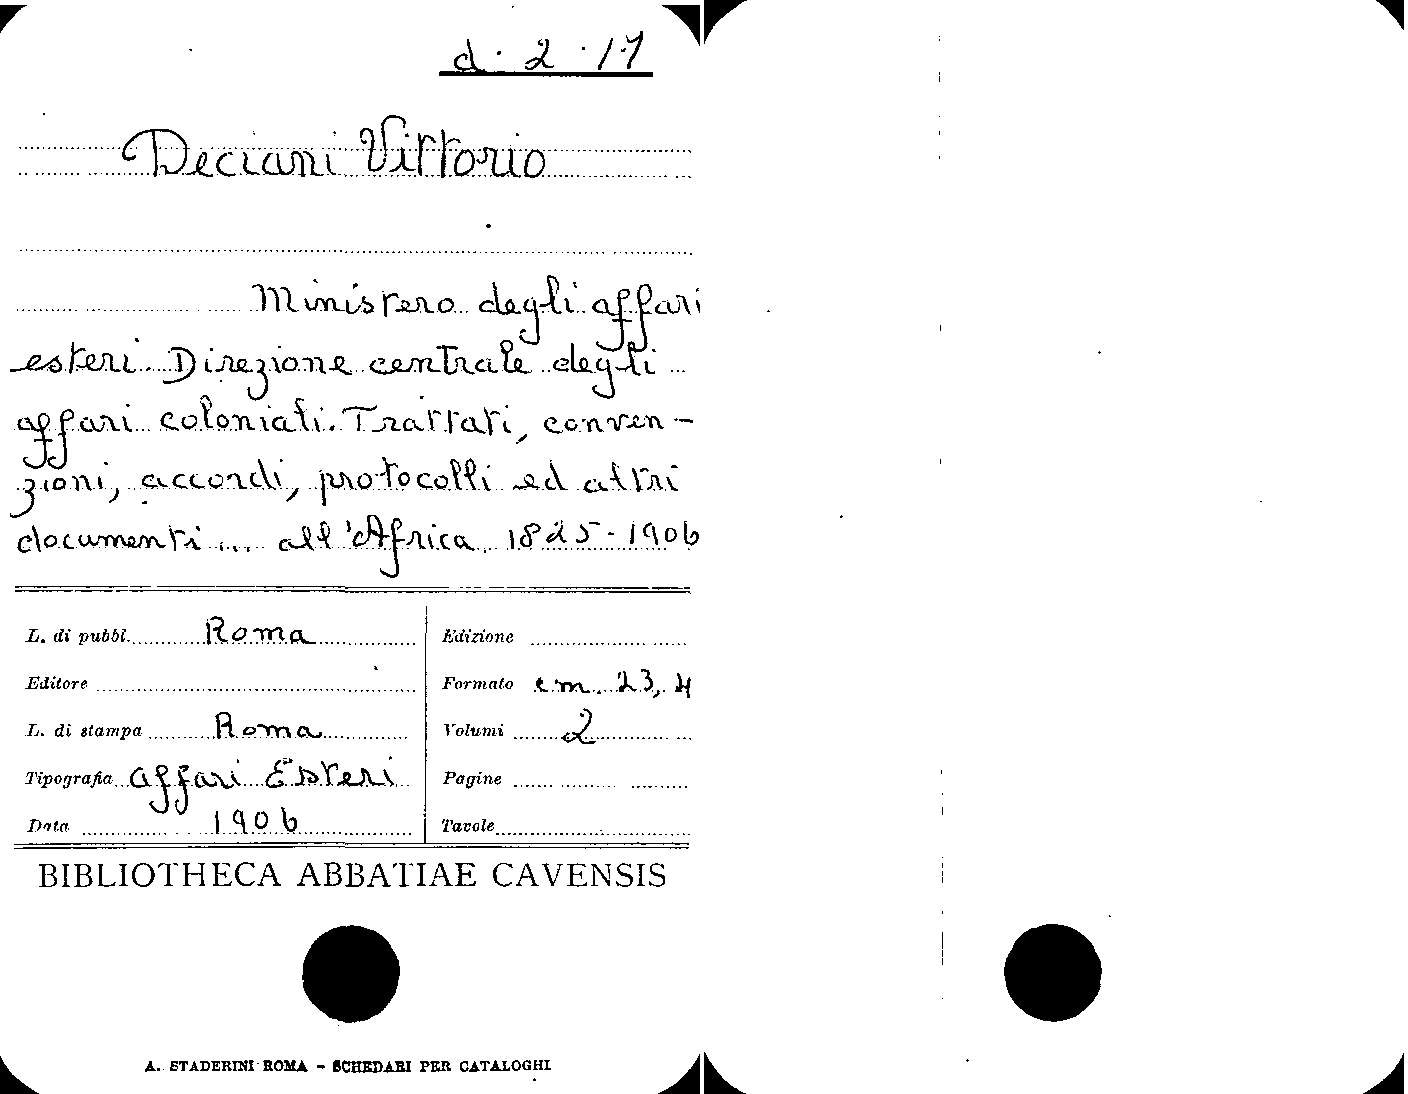 d. 2. 17
Deciani Vittorio
Ministero degli affari
esteri. Direzione centrale degli
affari coloniali. Trattati, conven-
zioni, accordi, protocolli ed altri
documenti ... all'Africa 1825-1906
L. di pubbl. Roma
Editore
L. di stampa Roma
Tipografia Affari Esteri
Data 1906
Edizione
Formato cm. 23,4
Volumi 2
Pagine
Tavole
BIBLIOTHECA ABBATIAE CAVENSIS
A. STADERINI ROMA - SCHEDARI PER CATALOGHI